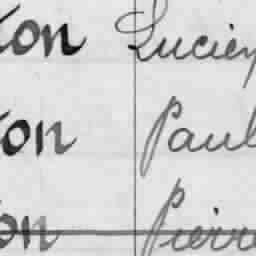 ton Lucien
ton Paul
on Pierre